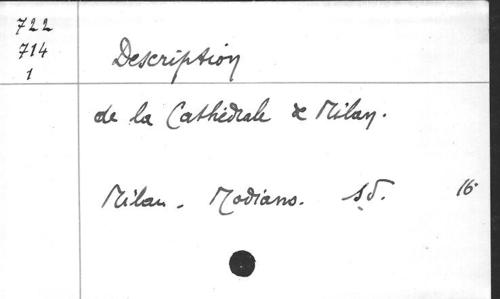 722
714
1
Description
de la Cathédrale de Milan.
Milan. Modiano. s.d. 16°